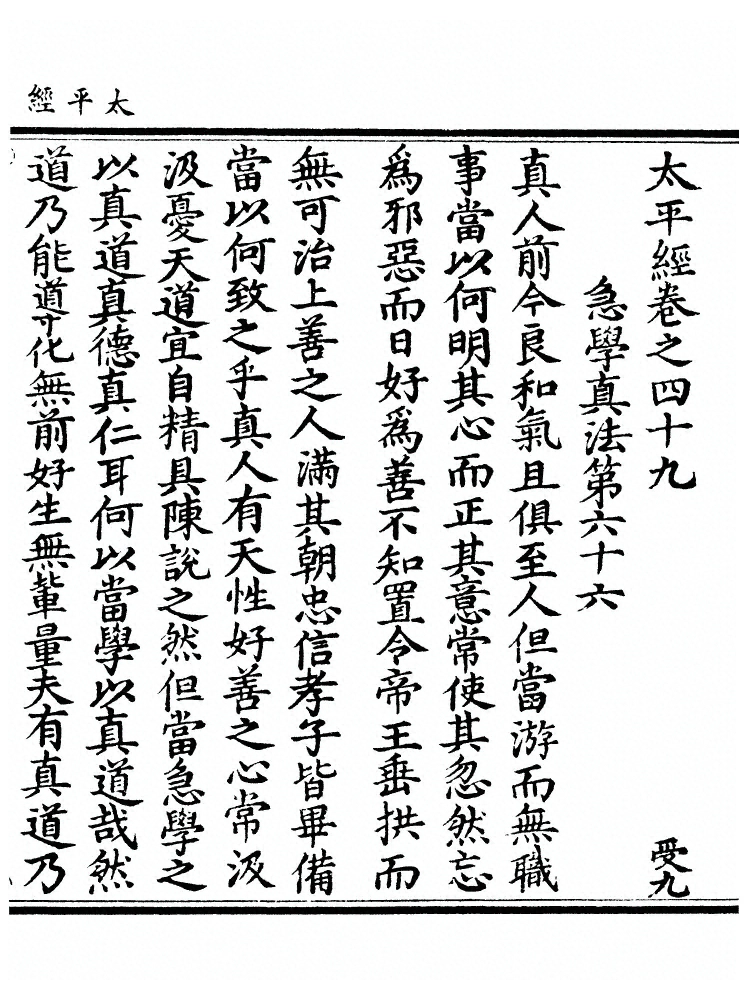 太平經
太平經卷之四十九
受九
急學真法第六十六
真人前今良和氣且俱至人但當游而無職
事當以何明其心而正其意常使其忽然忘
爲邪惡而日好爲善不知置令帝王垂拱而
無可治上善之人滿其朝忠信孝子皆畢備
當以何致之乎真人有天性好善之心常汲
汲憂天道宜自精具陳說之然但當急學之
以真道真德真仁耳何以當學以真道哉然
道乃能導化無前好生無輩量夫有真道乃